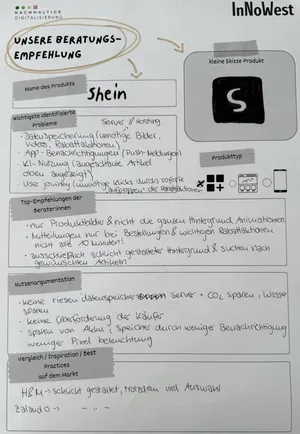 NACHHALTIGE
DIGITALISIERUNG
InNoWest
UNSERE BERATUNGS-
EMPFEHLUNG
kleine Skizze Produkt
Name des Produkts
Shein
S
Wichtigste identifizierte
Probleme
Server & Hosting
- Datenspeicherung (unnötige Bilder,
Videos, Rabattaktionen)
- App - Benachrichtigungen (Push-Meldungen)
- KI - Nutzung (ausgewählte Artikel
oben angezeigt)
- User journey (unnötige Klicks durch sofortige
der Rabattaktionen
Produkttyp
Top-Empfehlungen der
Berater:innen
- nur Produktbilder & nicht die ganzen Hintergrund Animationen
- Mitteilungen nur bei Bestellungen & wichtigen Rabattaktionen
nicht alle 10 minuten!
- ausschließlich schlicht gestalteter Hintergrund & suchen nach
gewünschten Artikeln
Nutzenargumentation
- keine riesen datenspeicher server - CO2 sparen, Wasser
sparen
- keine Überforderung der Käufer
- sparen von Akku, Speicher durch weniger Benachrichtigung
- weniger Pixel beleuchtung
Vergleich / Inspiration / Best
Practices
auf dem Markt
H&M → schlicht gestaltet, trotzdem viel Auswahl
Zalando → - ,, -